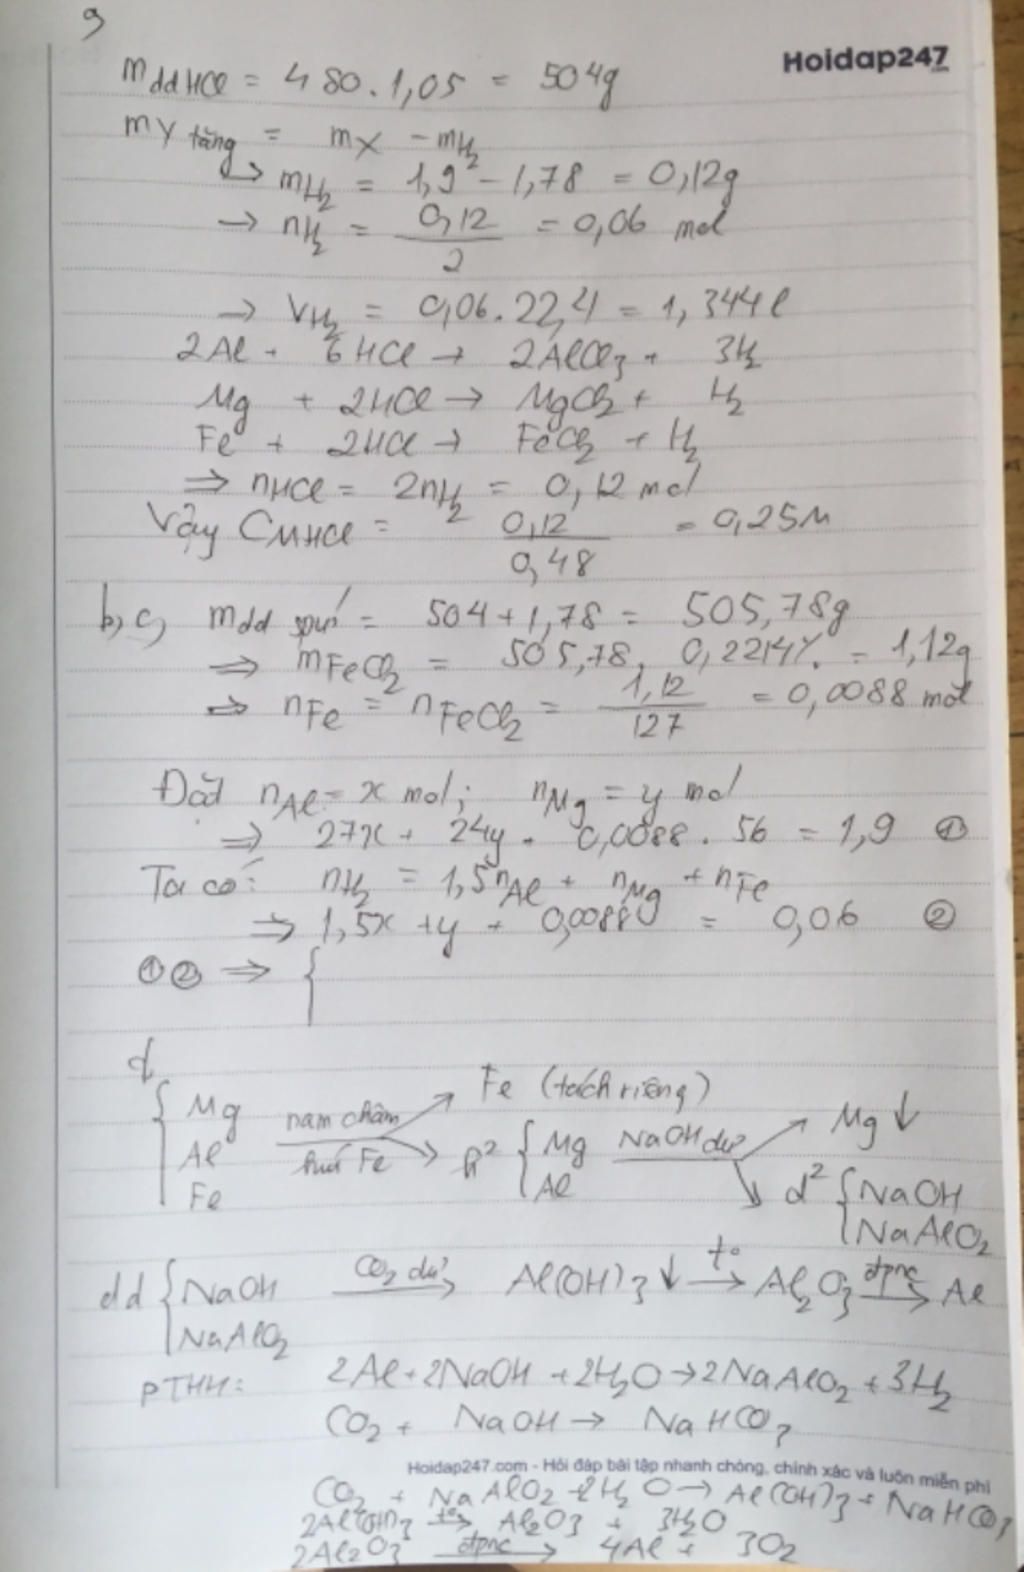 9
Hoidap247
mddHCl = 480.1,05 = 504g
mY tăng = mX - mH2
→ mH2 = 1,9 - 1,78 = 0,12g
→ nH2 = 0,12/2 = 0,06 mol
→ VH2 = 0,06.22,4 = 1,344l
2Al + 6HCl → 2AlCl3 + 3H2
Mg + 2HCl → MgCl2 + H2
Fe + 2HCl → FeCl2 + H2
⇒ nHCl = 2nH2 = 0,12 mol
Vậy CMHCl = 0,12/0,48 = 0,25M
b, c, mdd spứ = 504 + 1,78 = 505,78g
⇒ mFeCl2 = 505,78. 0,2214% = 1,12g
⇒ nFe = nFeCl2 = 1,12/127 = 0,0088 mol
Đặt nAl = x mol; nMg = y mol
⇒ 27x + 24y + 0,0088.56 = 1,9 ①
Ta có: nH2 = 1,5nAl + nMg + nFe
⇒ 1,5x + y + 0,0088 = 0,06 ②
①② ⇒ {
d,
{ Mg Al Fe nam châm hút Fe → Fe (tách riêng)
→ h² { Mg Al NaOH dư → Mg ↓
→ d² { NaOH NaAlO2
dd { NaOH NaAlO2 CO2 dư → Al(OH)3 ↓ t° → Al2O3 đpnc → Al
PTHH: 2Al + 2NaOH + 2H2O → 2NaAlO2 + 3H2
CO2 + NaOH → NaHCO3
Hoidap247.com - Hỏi đáp bài tập nhanh chóng, chính xác và luôn miễn phí
CO2 + NaAlO2 + 2H2O → Al(OH)3 + NaHCO3
2Al(OH)3 t° → Al2O3 + 3H2O
2Al2O3 đpnc → 4Al + 3O2